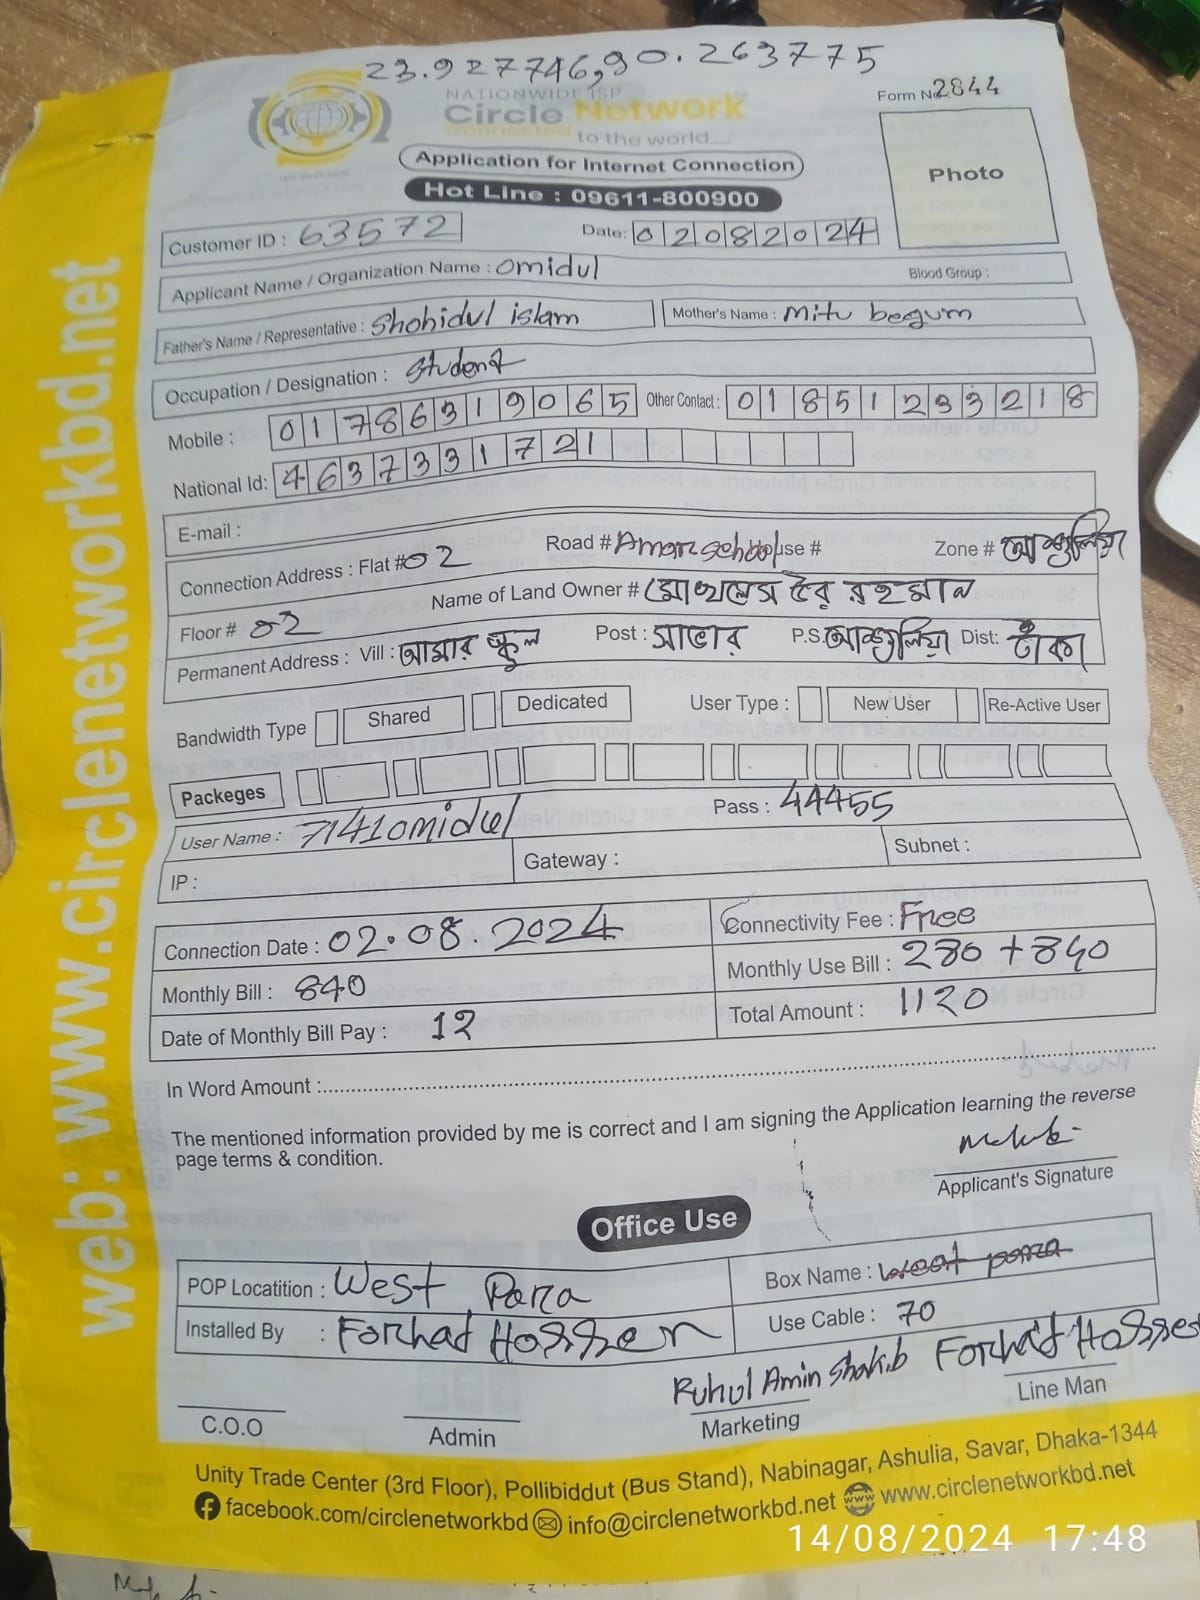 23.927746,90.263775
NATIONWIDE ISP
Circle Network
Connected to the world.....
Form No 2844
Application for Internet Connection
Hot Line : 09611-800900
Photo
Customer ID : 63572
Date: 02082024
Applicant Name / Organization Name : omidul
Blood Group :
Father's Name / Representative : Shohidul islam
Mother's Name : Mitu begum
Occupation / Designation : Student
Mobile : 01786319065
Other Contact : 01851233218
National Id: 4637331721
E-mail :
Connection Address : Flat # 02 Road # Aman school House # Zone # আশুলিয়া
Floor # 02 Name of Land Owner # রহমান
Permanent Address : Vill : আমার স্কুল Post : সাভার P.S. আশুলিয়া Dist: ঢাকা
Bandwidth Type Shared Dedicated User Type : New User Re-Active User
Packeges
User Name : 7141omidul Pass : 44455
IP : Gateway : Subnet :
Connection Date : 02.08.2024 Connectivity Fee : Free
Monthly Bill : 840 Monthly Use Bill : 280 + 840
Date of Monthly Bill Pay : 12 Total Amount : 1120
In Word Amount :
The mentioned information provided by me is correct and I am signing the Application learning the reverse
page terms & condition.
Applicant's Signature
Office Use
POP Locatition : West Para Box Name : west para
Installed By : Forhad Hossen Use Cable : 70
Ruhul Amin Shakib Forhad Hossen
C.O.O Admin Marketing Line Man
Unity Trade Center (3rd Floor), Pollibiddut (Bus Stand), Nabinagar, Ashulia, Savar, Dhaka-1344
facebook.com/circlenetworkbd info@circlenetworkbd.net www.circlenetworkbd.net
web: www.circlenetworkbd.net
14/08/2024 17:48